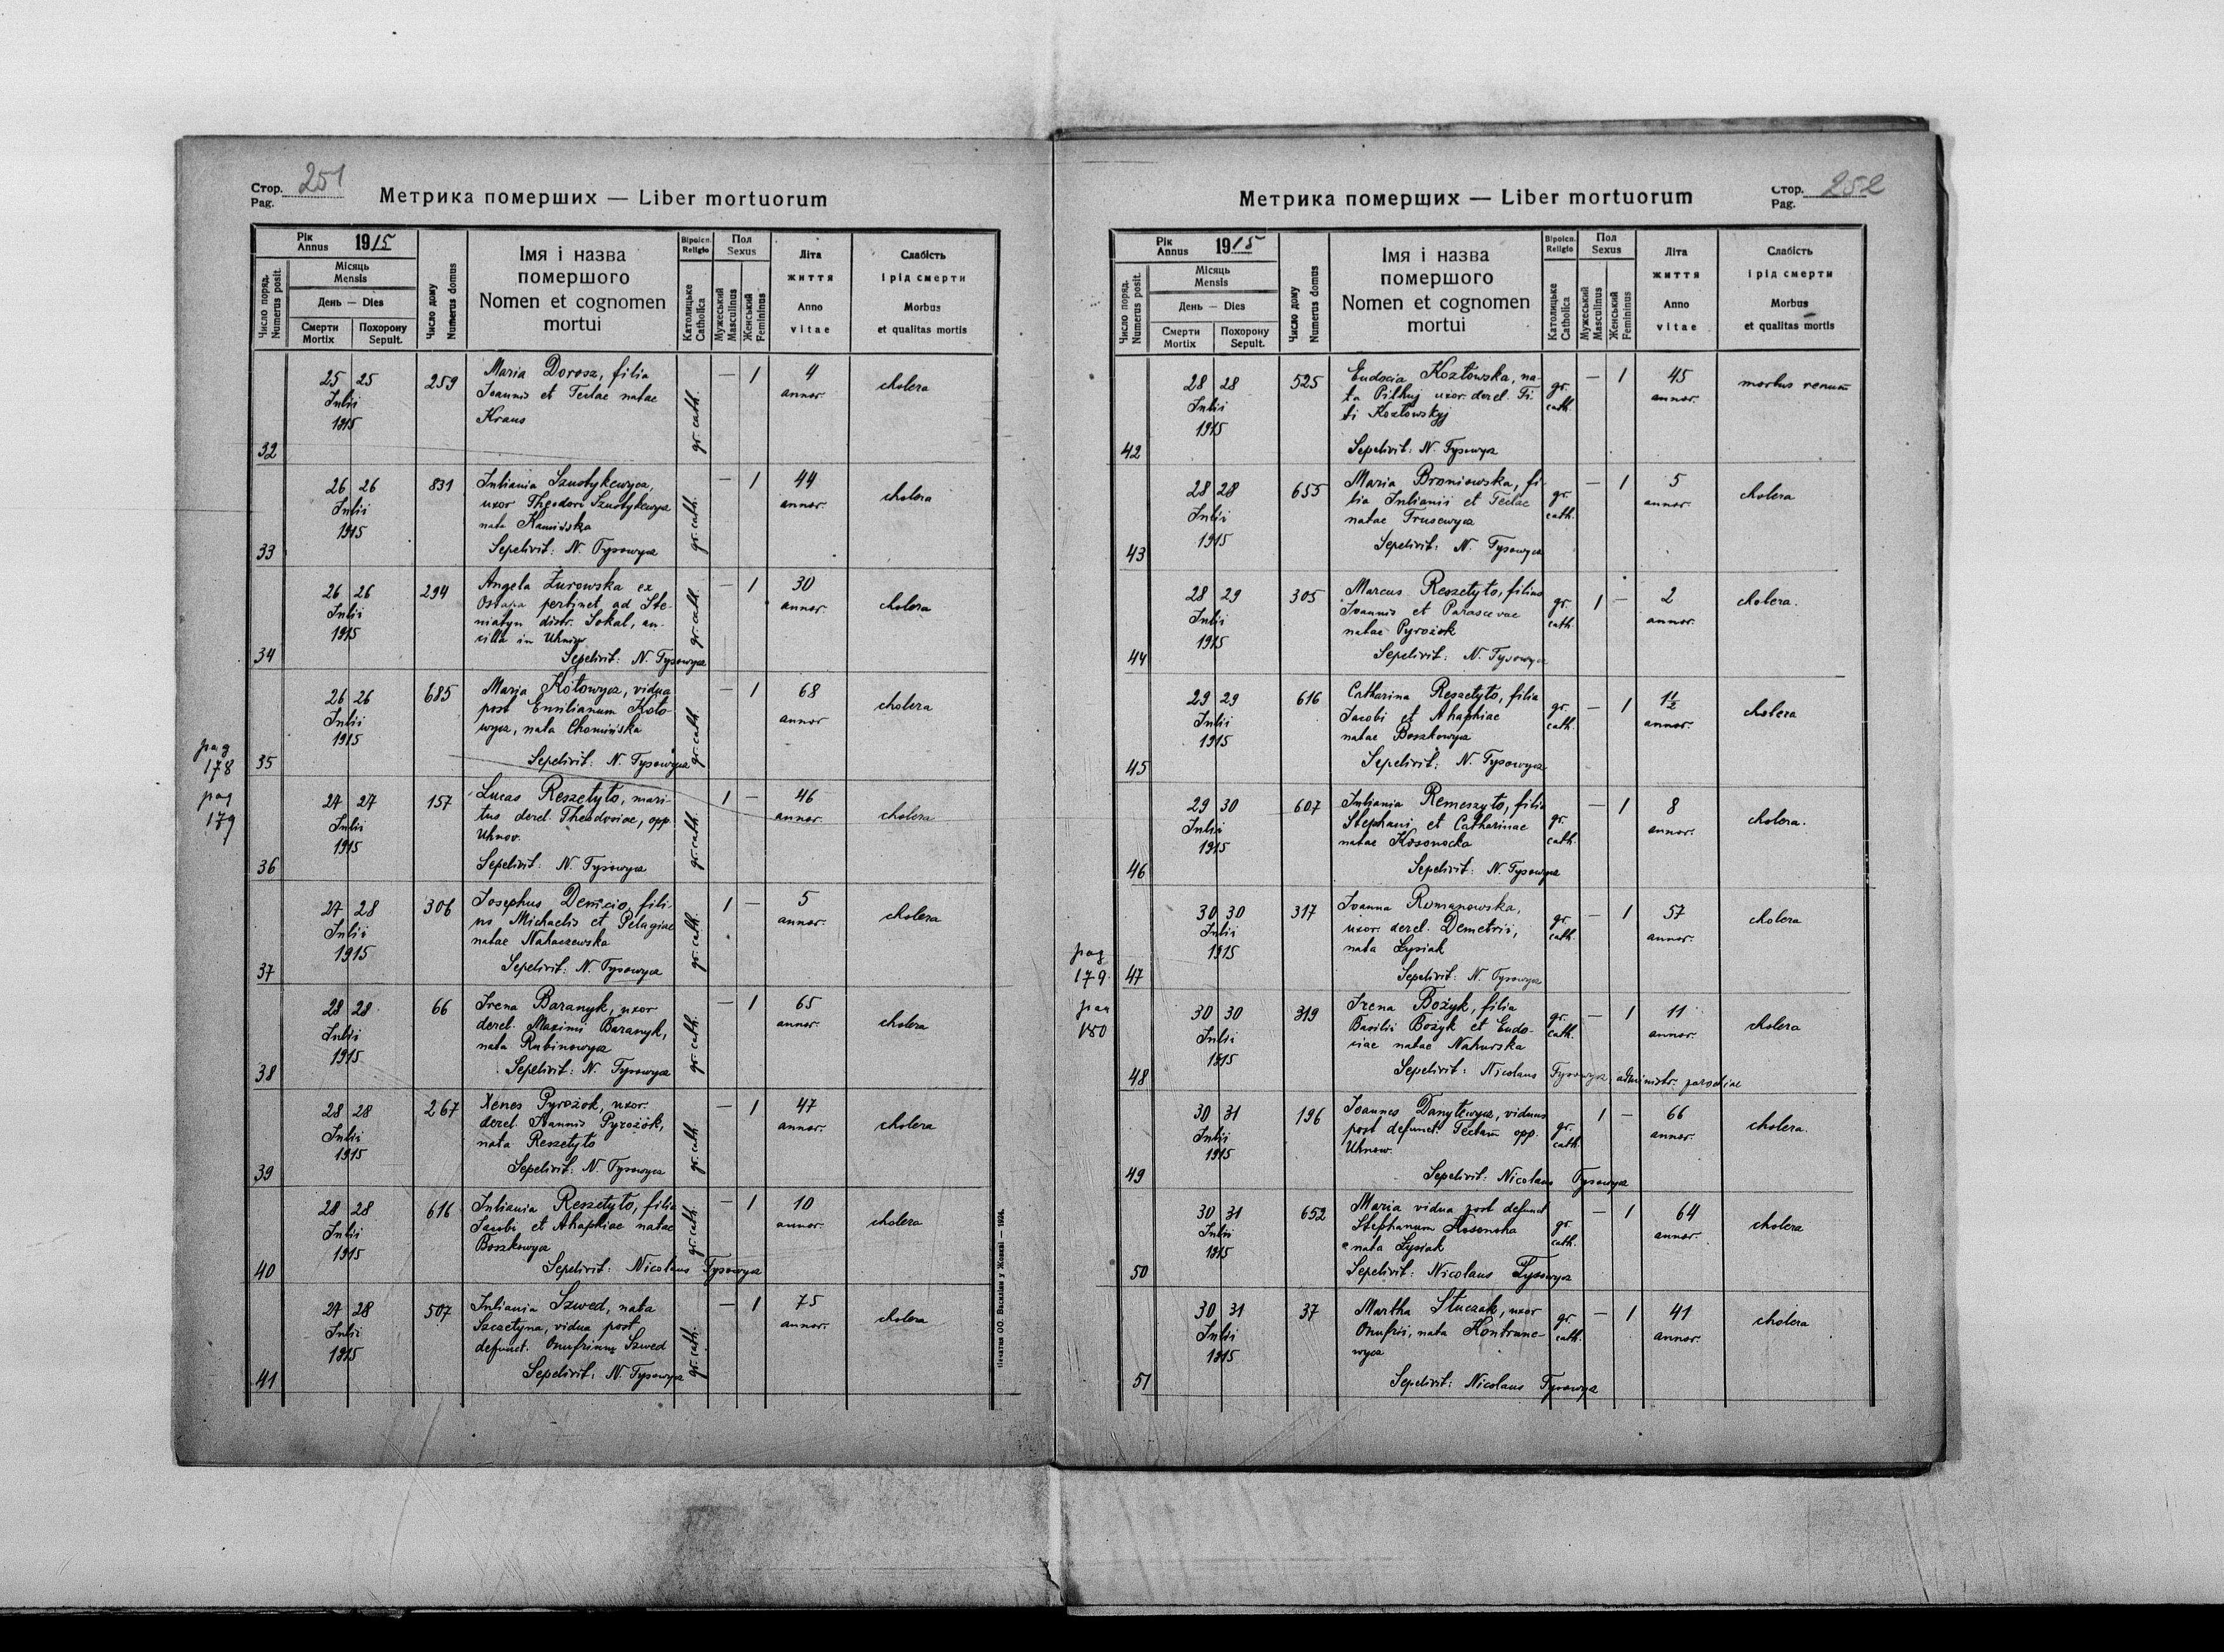 Стор. 251
Pag.
Метрика померших — Liber mortuorum
Рік
Annus 1915
Число поряд.
Numerus posit.
Місяць
Mensis
День — Dies
Смерти
Mortix
Похорону
Sepult.
Число дому
Numerus domus
Імя і назва
помершого
Nomen et cognomen
mortui
Віроісп.
Religio
Католицьке
Catholica
Пол
Sexus
Мужеський
Masculinus
Женський
Femininus
Літа
життя
Anno
vitae
Слабість
і рід смерти
Morbus
et qualitas mortis
32
25 25
Julii
1915
259
Maria Dorosz, filia
Joannis et Teclae natae
Kraus
gr. cath.
— 1
4
annor.
cholera
33
26 26
Julii
1915
831
Juliania Szustykewycz,
uxor Theodori Szustykewycz
nata Kamińska
Sepelivit: N. Tysowycz
gr. cath.
— 1
44
annor.
cholera
34
26 26
Julii
1915
294
Angela Żurowska ex
pertinet ad Ste-
niatyn distr. Sokal, an-
cilla in Uhniw
Sepelivit: N. Tysowycz
gr. cath.
— 1
30
annor.
cholera
pag
178
35
26 26
Julii
1915
685
Maria Kotowycz, vidua
post Emilianum Koto-
wycz, nata Chomińska
Sepelivit: N. Tysowycz
gr. cath.
— 1
68
annor
cholera
pag
179
36
27 27
Julii
1915
157
Lucas Reszetyło, mari-
tus derel. Theodosiae, opp.
Uhnov.
Sepelivit: N. Tysowycz
gr. cath.
1 —
46
annor.
cholera
37
27 28
Julii
1915
306
Josephus Demcio, fili-
us Michaelis et Pelagiae
natae Nahaczewska
Sepelivit: N. Tysowycz
gr. cath.
1 —
5
annor.
cholera
38
28 28
Julii
1915
66
Irena Baranyk, uxor
derel. Maximi Baranyk,
nata Rubinowycz
Sepelivit: N. Tysowycz
gr. cath.
— 1
65
annor.
cholera
39
28 28
Julii
1915
267
Xenes Pyrożok, uxor.
derel. Joannis Pyrożok,
nata Reszetyło
Sepelivit: N. Tysowycz
gr. cath.
— 1
47
annor.
cholera
40
28 28
Julii
1915
616
Juliania Reszetyło, filia
Jacobi et Ahaphiae natae
Boszkowycz
Sepelivit: Nicolaus Tysowycz
gr. cath.
— 1
10
annor.
cholera
41
27 28
Julii
1915
507
Juliania Szwed, nata
Szczetyna, vidua post
defunct. Onufrium Szwed
Sepelivit: N. Tysowycz
gr. cath.
— 1
75
annor.
cholera
Печатня ОО. Василіян у Жовкві — 1924.
Метрика померших — Liber mortuorum
Стор. 252
Pag.
Рік
Annus 1915
Число поряд.
Numerus posit.
Місяць
Mensis
День — Dies
Смерти
Mortix
Похорону
Sepult.
Число дому
Numerus domus
Імя і назва
помершого
Nomen et cognomen
mortui
Віроісп.
Religio
Католицьке
Catholica
Пол
Sexus
Мужеський
Masculinus
Женський
Femininus
Літа
життя
Anno
vitae
Слабість
і рід смерти
Morbus
et qualitas mortis
42
28 28
Julii
1915
525
Eudocia Kozłowska, na-
ta Pilhuj uxor. derel. Ti-
ti Kozłowskyj
Sepelivit: N. Tysowycz
gr.
cath.
— 1
45
annor.
morbus renum
43
28 28
Julii
1915
655
Maria Broniowska, fi-
lia Julianii et Teclae
natae Trusewycz
Sepelivit: N. Tysowycz
gr.
cath.
— 1
5
annor.
cholera
44
28 29
Julii
1915
305
Marcus Reszetyło, filius
Joannis et Parascevae
natae Pyrożok
Sepelivit: N. Tysowycz
gr.
cath.
1 —
2
annor.
cholera.
45
29 29
Julii
1915
616
Catharina Reszetyło, filia
Jacobi et Ahaphiae
natae Boszkowycz
Sepelivit: N. Tysowycz
gr.
cath.
— 1
1 1/2
annor.
cholera
46
29 30
Julii
1915
607
Juliania Remeszyło, filia
Stephani et Catharinae
natae Kosonocka
Sepelivit: N. Tysowycz
gr.
cath.
— 1
8
annor.
cholera.
pag
179.
47
30 30
Julii
1915
317
Joanna Romanowska,
uxor. derel. Demetrii,
nata Łysiak
Sepelivit: N. Tysowycz
gr.
cath.
— 1
57
annor.
cholera
pag
180
48
30 30
Julii
1915
319
Irena Bożyk, filia
Basilii Bożyk et Eudo-
ciae natae Nahurska
Sepelivit: Nicolaus Tysowycz administr. parochiae
gr.
cath.
— 1
11
annor.
cholera
49
30 31
Julii
1915
196
Joannes Danyłewycz, viduus
post defunct. Teclam opp.
Uhnow.
Sepelivit: Nicolaus Tysowycz
gr.
cath.
1 —
66
annor.
cholera.
50
30 31
Julii
1915
652
Maria vidua post defunct
Stephanum Kosonoha
nata Łysiak
Sepelivit: Nicolaus Tysowycz
gr.
cath.
— 1
64
annor.
cholera
51
30 31
Julii
1915
37
Martha Stuczak, uxor
Onufrii, nata Kontrune-
wycz
Sepelivit: Nicolaus Tysowycz
gr.
cath.
— 1
41
annor.
cholera